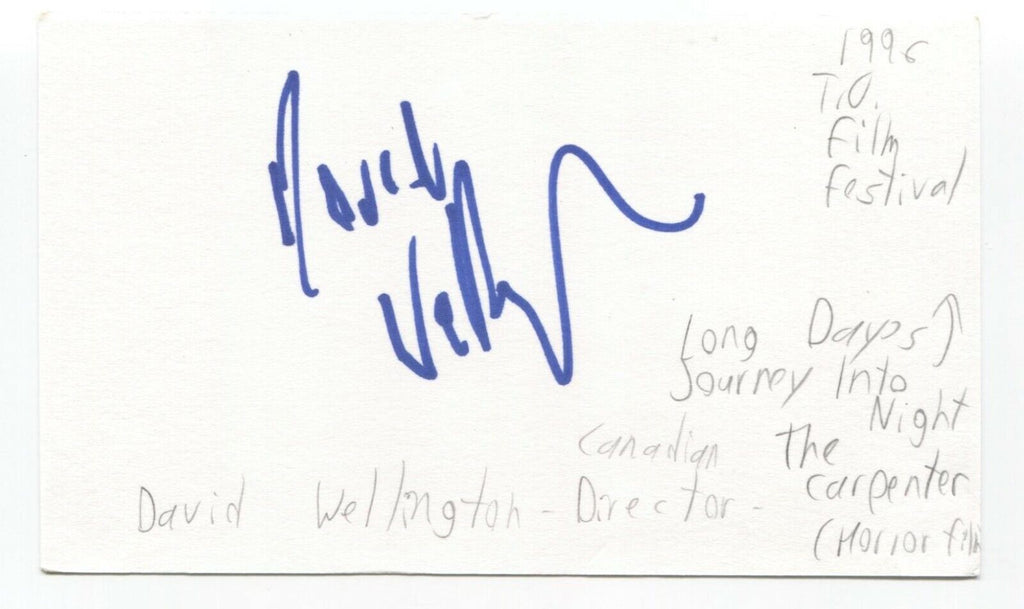 1996
T.O.
Film
Festival
David
Well
Long Days
Journey Into
Night
Canadian The
David Wellington - Director - Carpenter
(Horror film